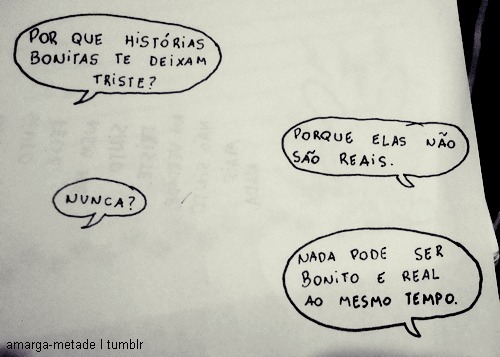 POR QUE HISTÓRIAS
BONITAS TE DEIXAM
TRISTE?
PORQUE ELAS NÃO
SÃO REAIS.
NUNCA?
NADA PODE SER
BONITO E REAL
AO MESMO TEMPO.
amarga-metade l tumblr